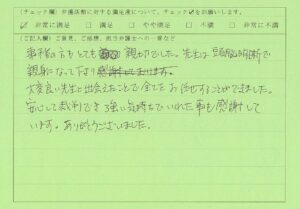 (チェック欄) 弁護活動に対する満足度について、チェック✓をお願いします。
☑ 非常に満足 □ 満足 □ やや満足 □ 不満 □ 非常に不満
(ご記入欄) ご意見、ご感想、担当弁護士への一言など
事務の方もとても親切でした。先生は頭脳明晰で
親身になって下さり感謝しております。
大変良い先生と出会えたことで全てをお任せすることができました。
安心して裁判でき強い気持ちでいれた事も感謝して
います。ありがとうございました。